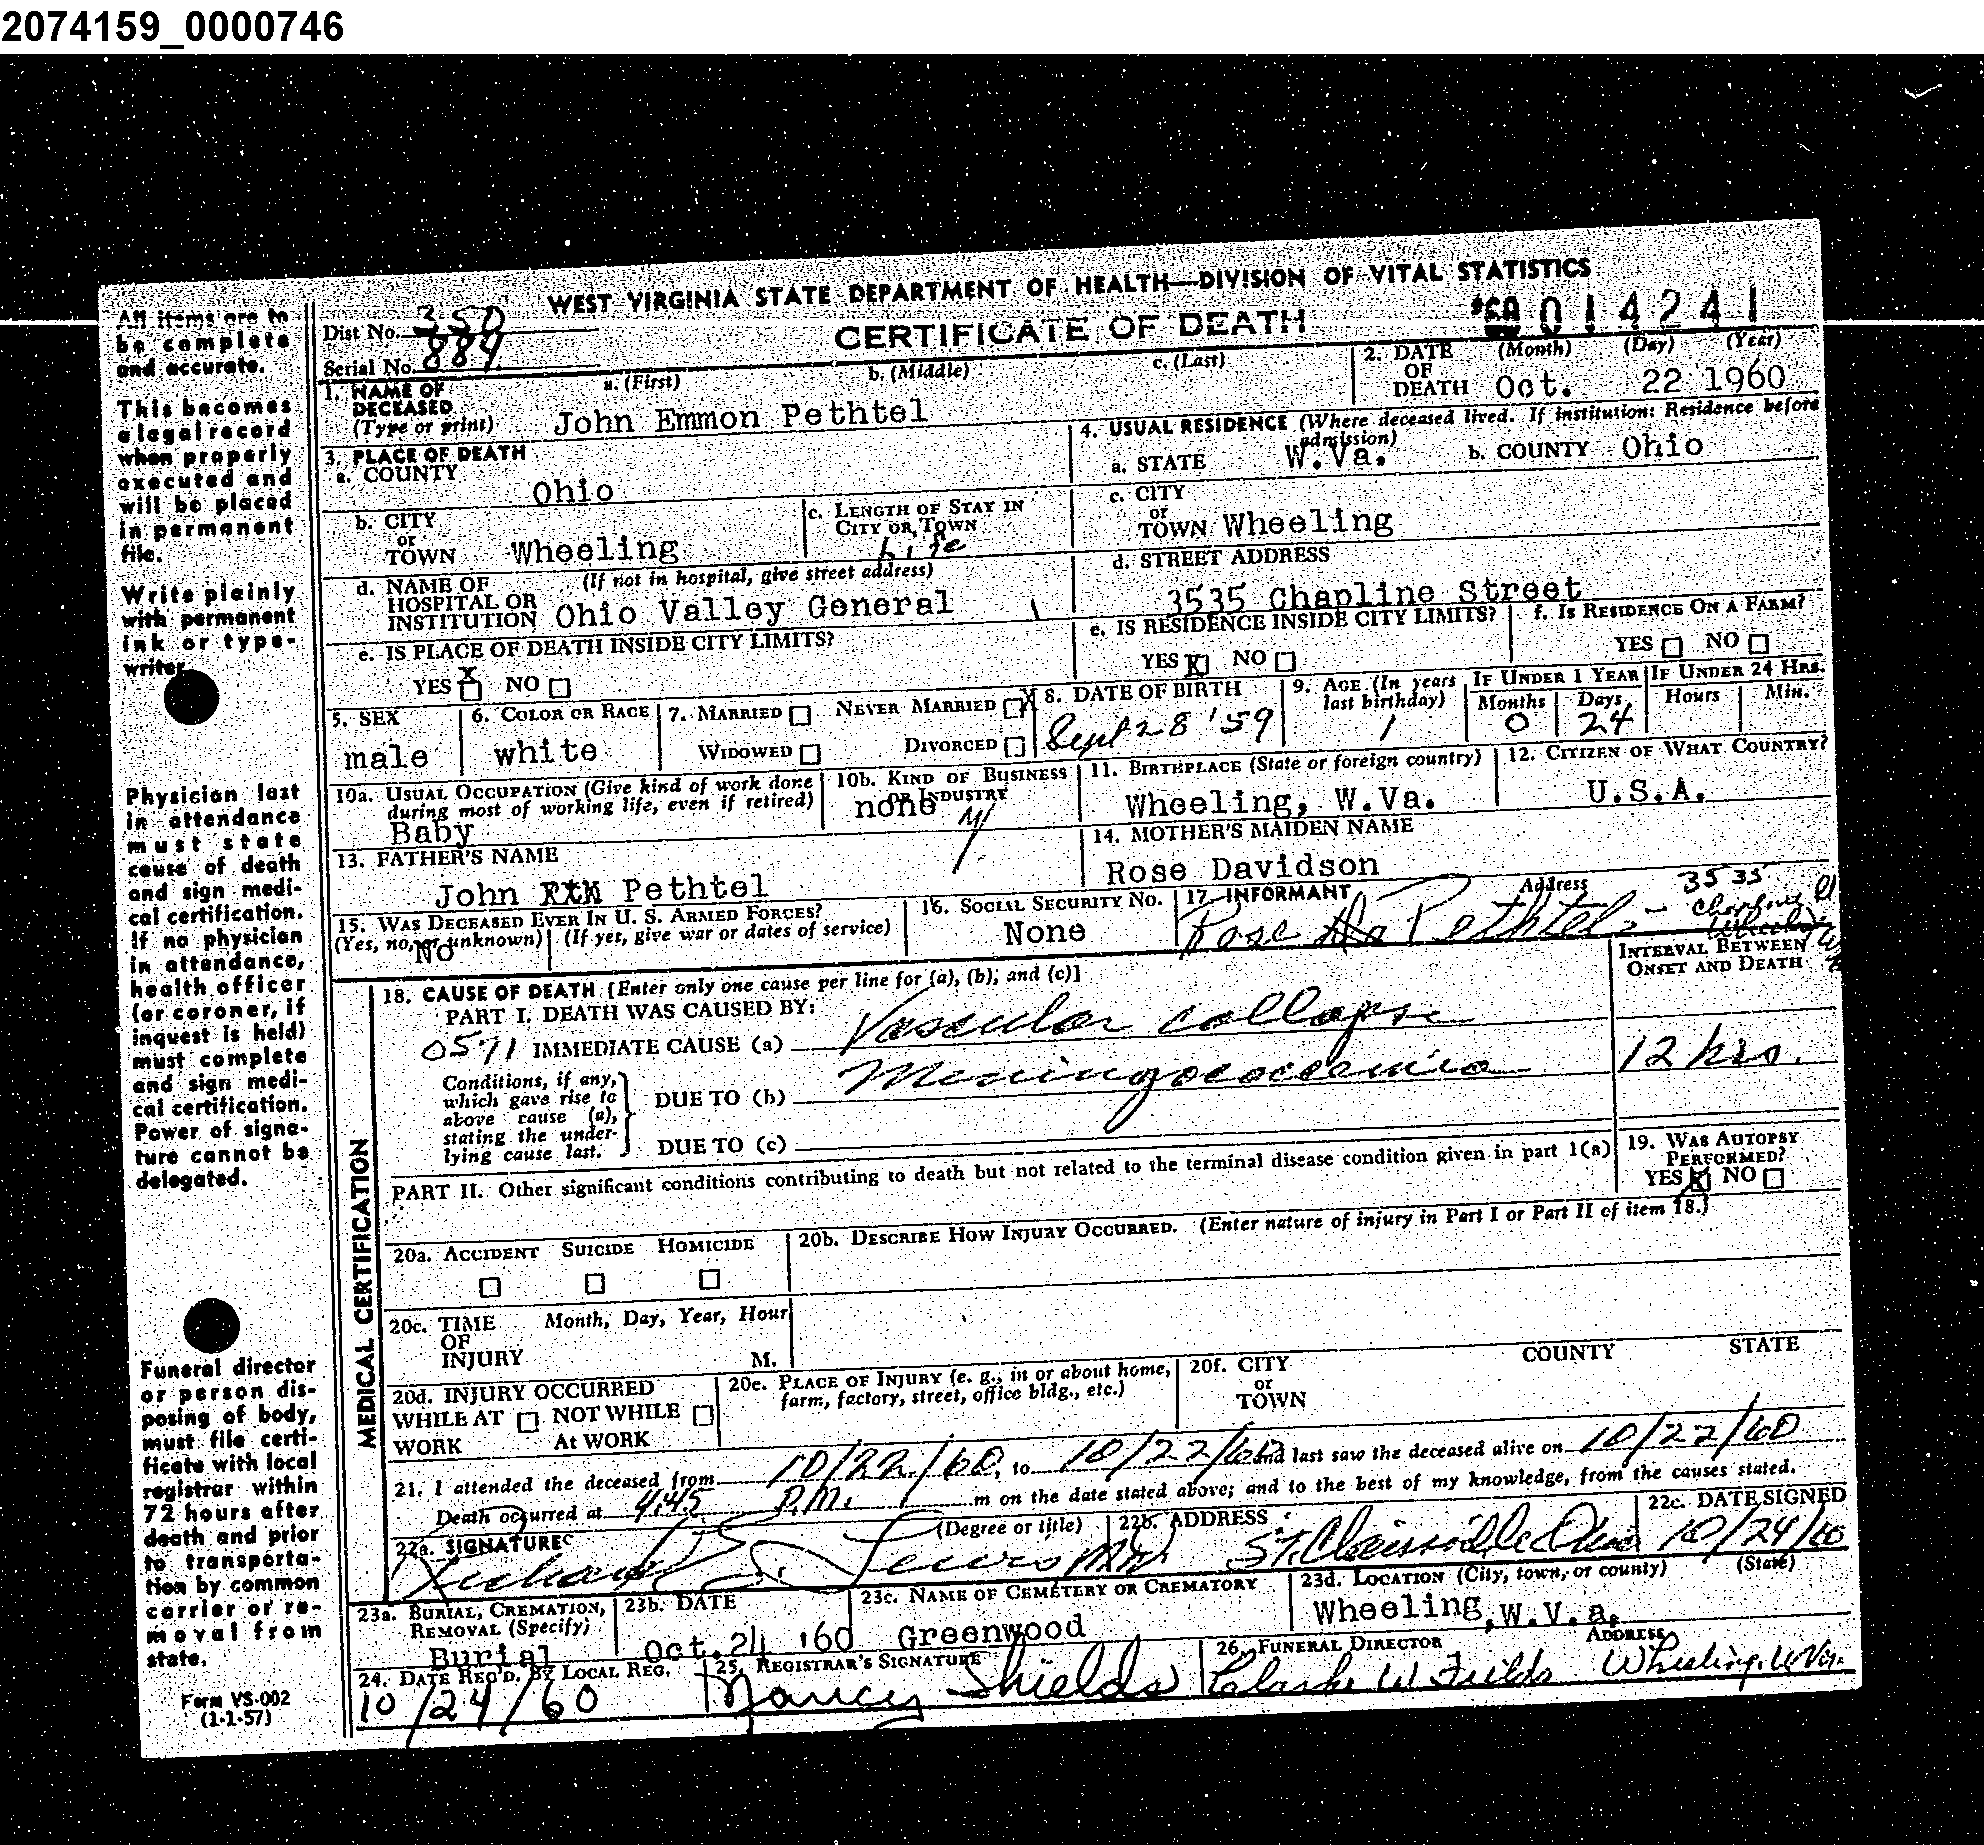 2074159_0000746
WEST VIRGINIA STATE DEPARTMENT OF HEALTH—DIVISION OF VITAL STATISTICS
CERTIFICATE OF DEATH
014241
Dist No. 350
Serial No. 884
All items are to
be complete
and accurate.
This becomes
a legal record
when properly
executed and
will be placed
in permanent
file.
Write plainly
with permanent
ink or type-
writer.
Physician last
in attendance
must state
cause of death
and sign medi-
cal certification.
If no physician
in attendance,
health officer
(or coroner, if
inquest is held)
must complete
and sign medi-
cal certification.
Power of signa-
ture cannot be
delegated.
Funeral director
or person dis-
posing of body,
must file certi-
ficate with local
registrar within
72 hours after
death and prior
to transporta-
tion by common
carrier or re-
moval from
state.
Form VS-002
(1-1-57)
1. NAME OF DECEASED (Type or print) a. (First) b. (Middle) c. (Last)
John Emmon Pethtel
2. DATE OF DEATH (Month) (Day) (Year)
Oct. 22 1960
3. PLACE OF DEATH
a. COUNTY Ohio
b. CITY or TOWN Wheeling
c. LENGTH OF STAY IN CITY OR TOWN Life
d. NAME OF HOSPITAL OR INSTITUTION (If not in hospital, give street address)
Ohio Valley General
e. IS PLACE OF DEATH INSIDE CITY LIMITS?
YES X NO
4. USUAL RESIDENCE (Where deceased lived. If institution: Residence before admission)
a. STATE W.Va. b. COUNTY Ohio
c. CITY or TOWN Wheeling
d. STREET ADDRESS
3535 Chapline Street
e. IS RESIDENCE INSIDE CITY LIMITS?
YES X NO
f. IS RESIDENCE ON A FARM?
YES NO
5. SEX male
6. COLOR OR RACE white
7. MARRIED NEVER MARRIED X
WIDOWED DIVORCED
8. DATE OF BIRTH Sept 28 '59
9. AGE (In years last birthday) 1
IF UNDER 1 YEAR Months 0 Days 24
IF UNDER 24 HRS. Hours Min.
10a. USUAL OCCUPATION (Give kind of work done during most of working life, even if retired)
Baby
10b. KIND OF BUSINESS OR INDUSTRY
none
11. BIRTHPLACE (State or foreign country)
Wheeling, W.Va.
12. CITIZEN OF WHAT COUNTRY?
U.S.A.
13. FATHER'S NAME
John Pethtel
14. MOTHER'S MAIDEN NAME
Rose Davidson
15. WAS DECEASED EVER IN U. S. ARMED FORCES?
(Yes, no, or unknown) (If yes, give war or dates of service)
NO
16. SOCIAL SECURITY NO.
None
17. INFORMANT Address
Rose Pethtel - 3535 Chapline Wheeling
MEDICAL CERTIFICATION
18. CAUSE OF DEATH [Enter only one cause per line for (a), (b), and (c)]
INTERVAL BETWEEN ONSET AND DEATH
PART I. DEATH WAS CAUSED BY:
0571 IMMEDIATE CAUSE (a) Vascular collapse
Conditions, if any, which gave rise to above cause (a), stating the underlying cause last.
DUE TO (b) Meningococcemia 12 hrs.
DUE TO (c)
PART II. Other significant conditions contributing to death but not related to the terminal disease condition given in part 1(a)
19. WAS AUTOPSY PERFORMED?
YES X NO
20a. ACCIDENT SUICIDE HOMICIDE
20b. DESCRIBE HOW INJURY OCCURRED. (Enter nature of injury in Part I or Part II of item 18.)
20c. TIME OF INJURY Month, Day, Year, Hour M.
20d. INJURY OCCURRED
WHILE AT WORK NOT WHILE AT WORK
20e. PLACE OF INJURY (e. g., in or about home, farm, factory, street, office bldg., etc.)
20f. CITY or TOWN COUNTY STATE
21. I attended the deceased from 10/22/60, to 10/22/60 and last saw the deceased alive on 10/22/60
Death occurred at 4:45 P.M. m on the date stated above; and to the best of my knowledge, from the causes stated.
22a. SIGNATURE (Degree or title)
Richard MD
22b. ADDRESS
St. Clairsville Ohio
22c. DATE SIGNED
10/24/60
23a. BURIAL, CREMATION, REMOVAL (Specify)
Burial
23b. DATE
Oct. 24 '60
23c. NAME OF CEMETERY OR CREMATORY
Greenwood
23d. LOCATION (City, town, or county) (State)
Wheeling, W.V.a.
24. DATE REG'D. BY LOCAL REG.
10/24/60
25. REGISTRAR'S SIGNATURE
Nancy Shields
26. FUNERAL DIRECTOR ADDRESS
Clarke W Fields Wheeling, W.Va.